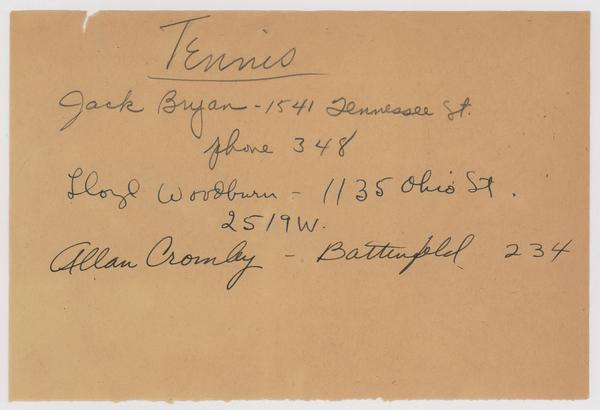 Tennis
Jack Bryan - 1541 Tennessee St.
phone 348
Lloyd Woodburn - 1135 Ohio St.
2519W.
Allan Cromley - Battenfeld 234